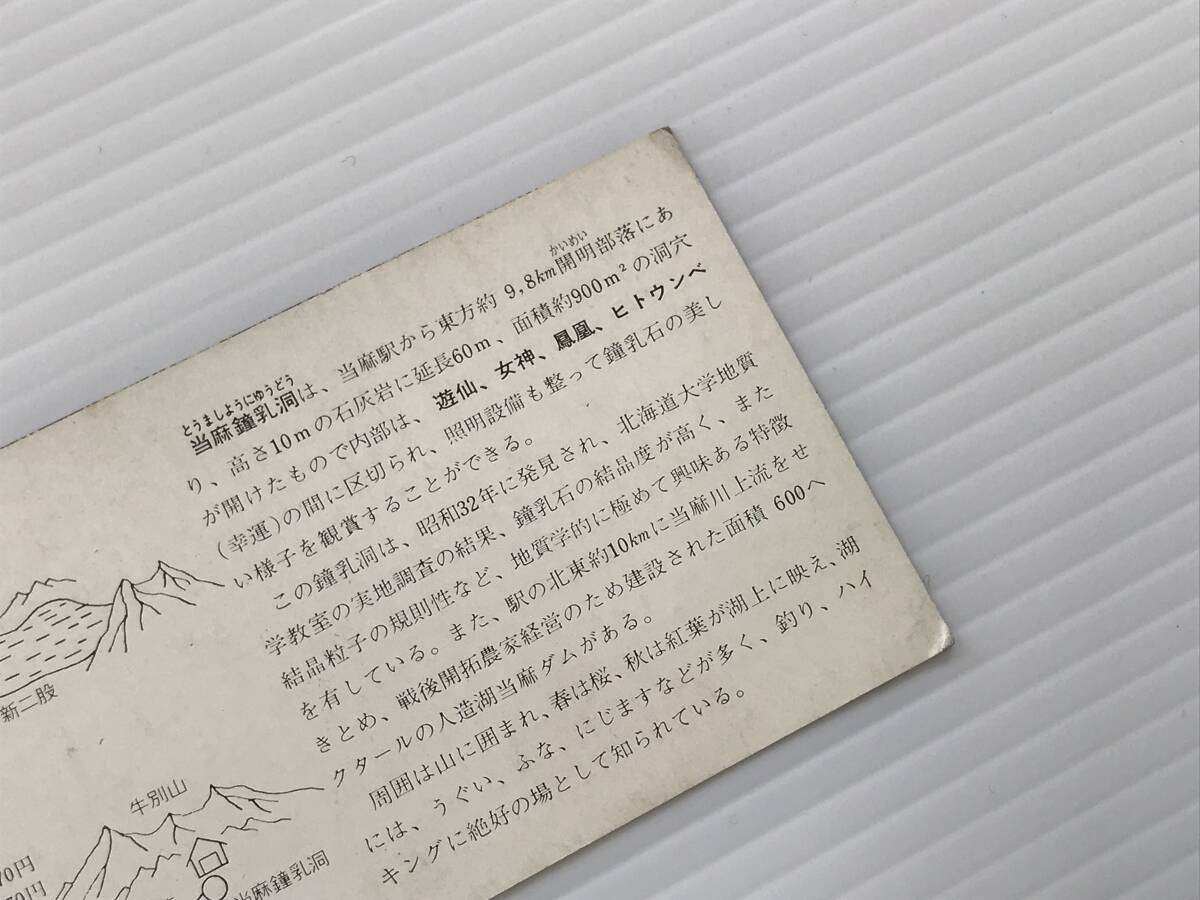 とうましようにゆうどう
かいめい
当麻鐘乳洞は、当麻駅から東方約 9,8km開明部落にあ
り、高さ10mの石灰岩に延長60m、面積約900m²の洞穴
が開けたもので内部は、遊仙、女神、鳳凰、ヒトウンペ
(幸運)の間に区切られ、照明設備も整って鐘乳石の美し
い様子を観賞することができる。
この鐘乳洞は、昭和32年に発見され、北海道大学地質
学教室の実地調査の結果、鐘乳石の結晶度が高く、また
結晶粒子の規則性など、地質学的に極めて興味ある特徴
を有している。また、駅の北東約10kmに当麻川上流をせ
きとめ、戦後開拓農家経営のため建設された面積 600ヘ
クタールの人造湖当麻ダムがある。
周囲は山に囲まれ、春は桜、秋は紅葉が湖上に映え、湖
には、うぐい、ふな、にじますなどが多く、釣り、ハイ
キングに絶好の場として知られている。
新二股
牛別山
当麻鐘乳洞
70円
70円